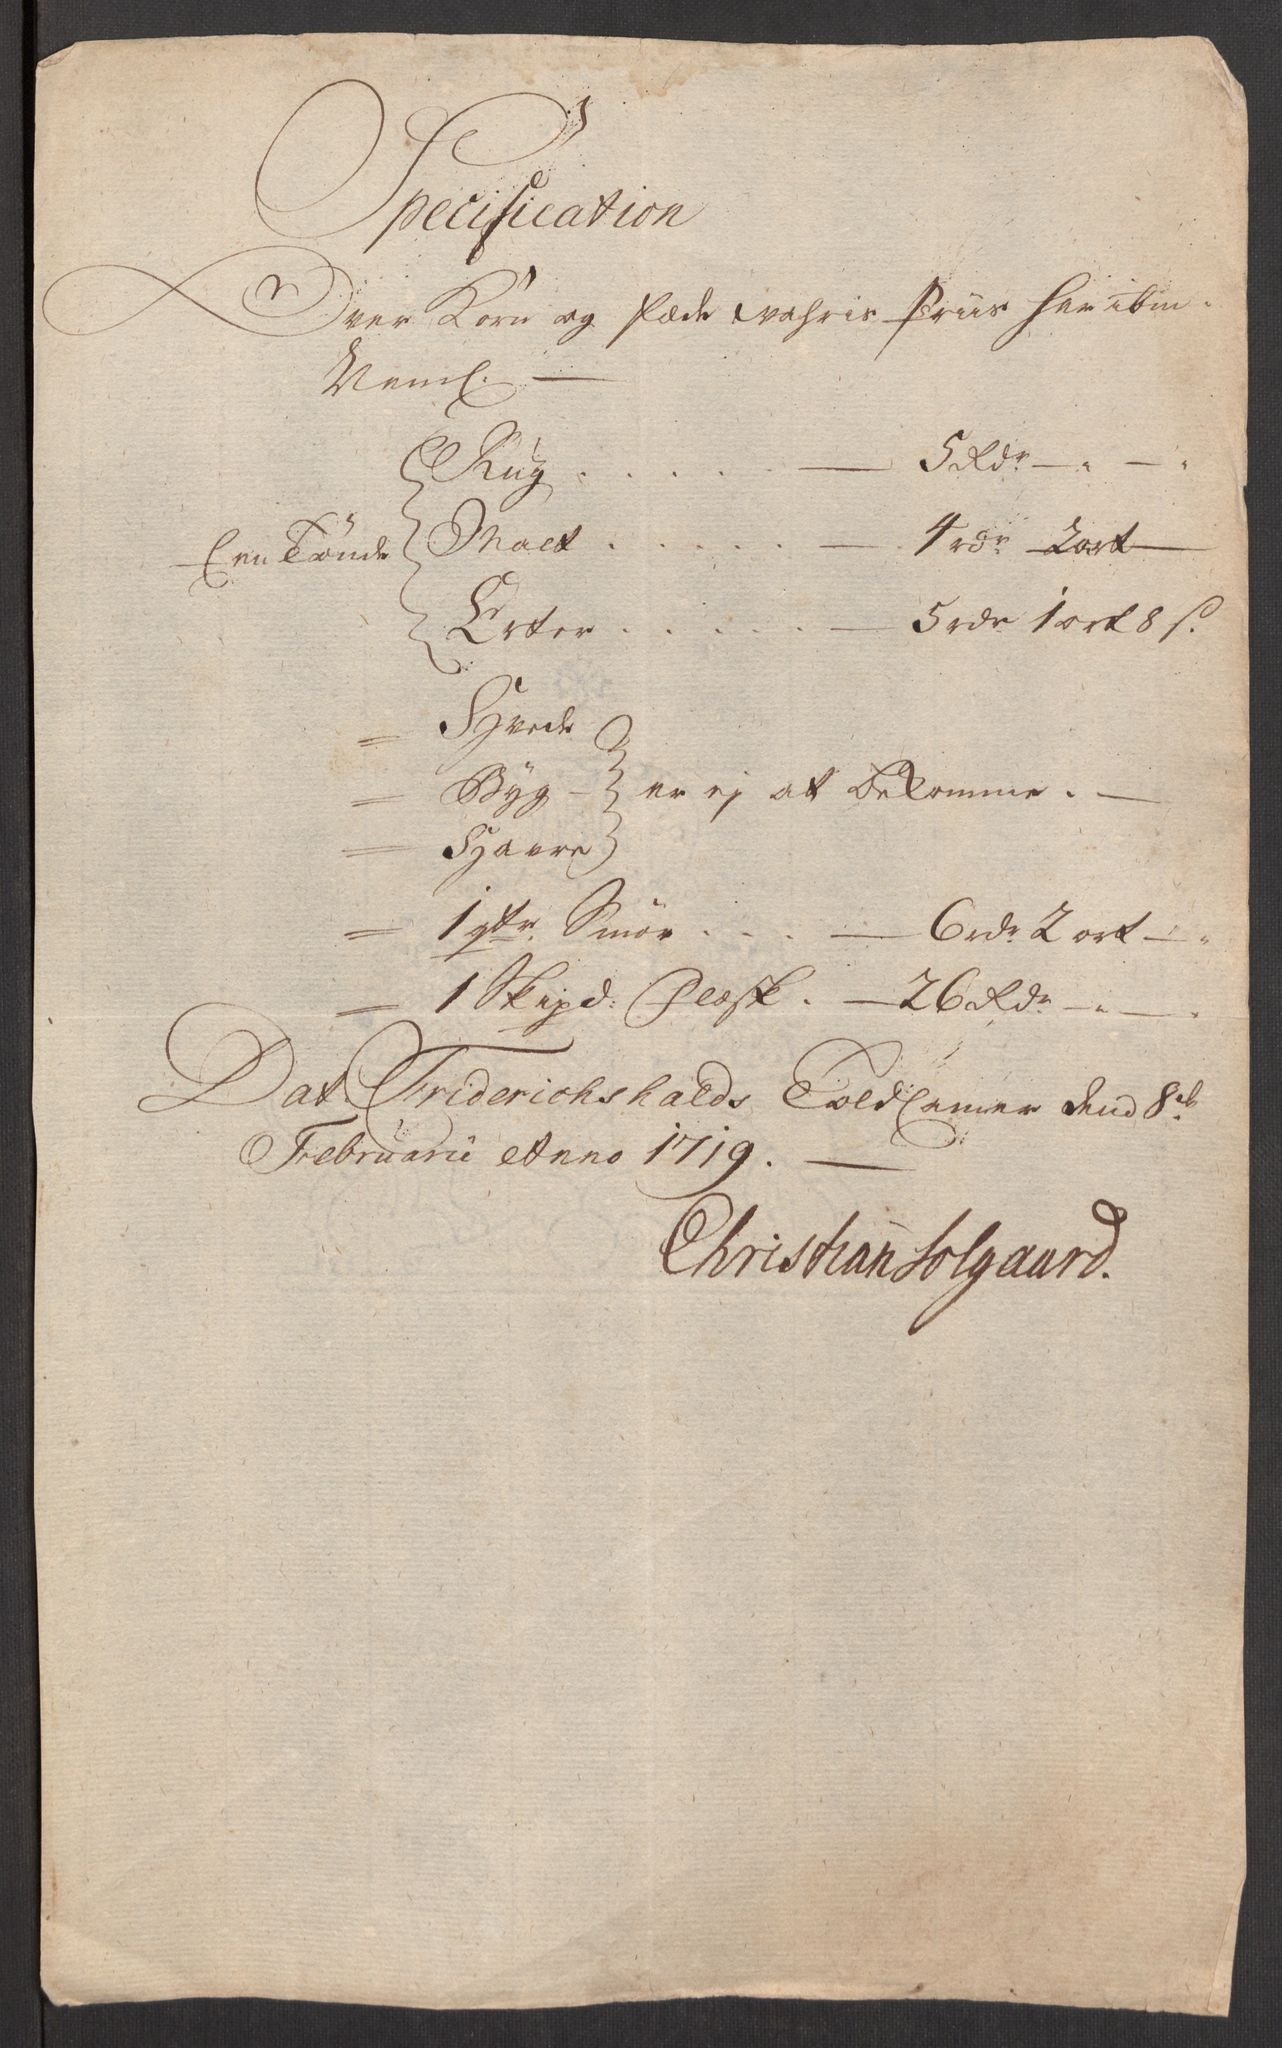 Specification
Over Korn og fæde wahris Priis her ibm.
Neml. —
Rug . . . . . — 5 Rdr — " — "
Een Tønde Malt . . . . . — 4 rdr 2 ort —
Erter . . . . . — 5 rdr 1 ort 8 s.
= Hvede
= Byg – er ej at bekomme. —
= Havre
= 1 qtr. Smør . . . — 6 rdr 2 ort — "
= 1 Skipd: Flæsk . — 26 Rdr — " — "
Dat. Friderichshalds Told Camer dend 8de
Februarii Anno 1719. —
Christian Solgaard.